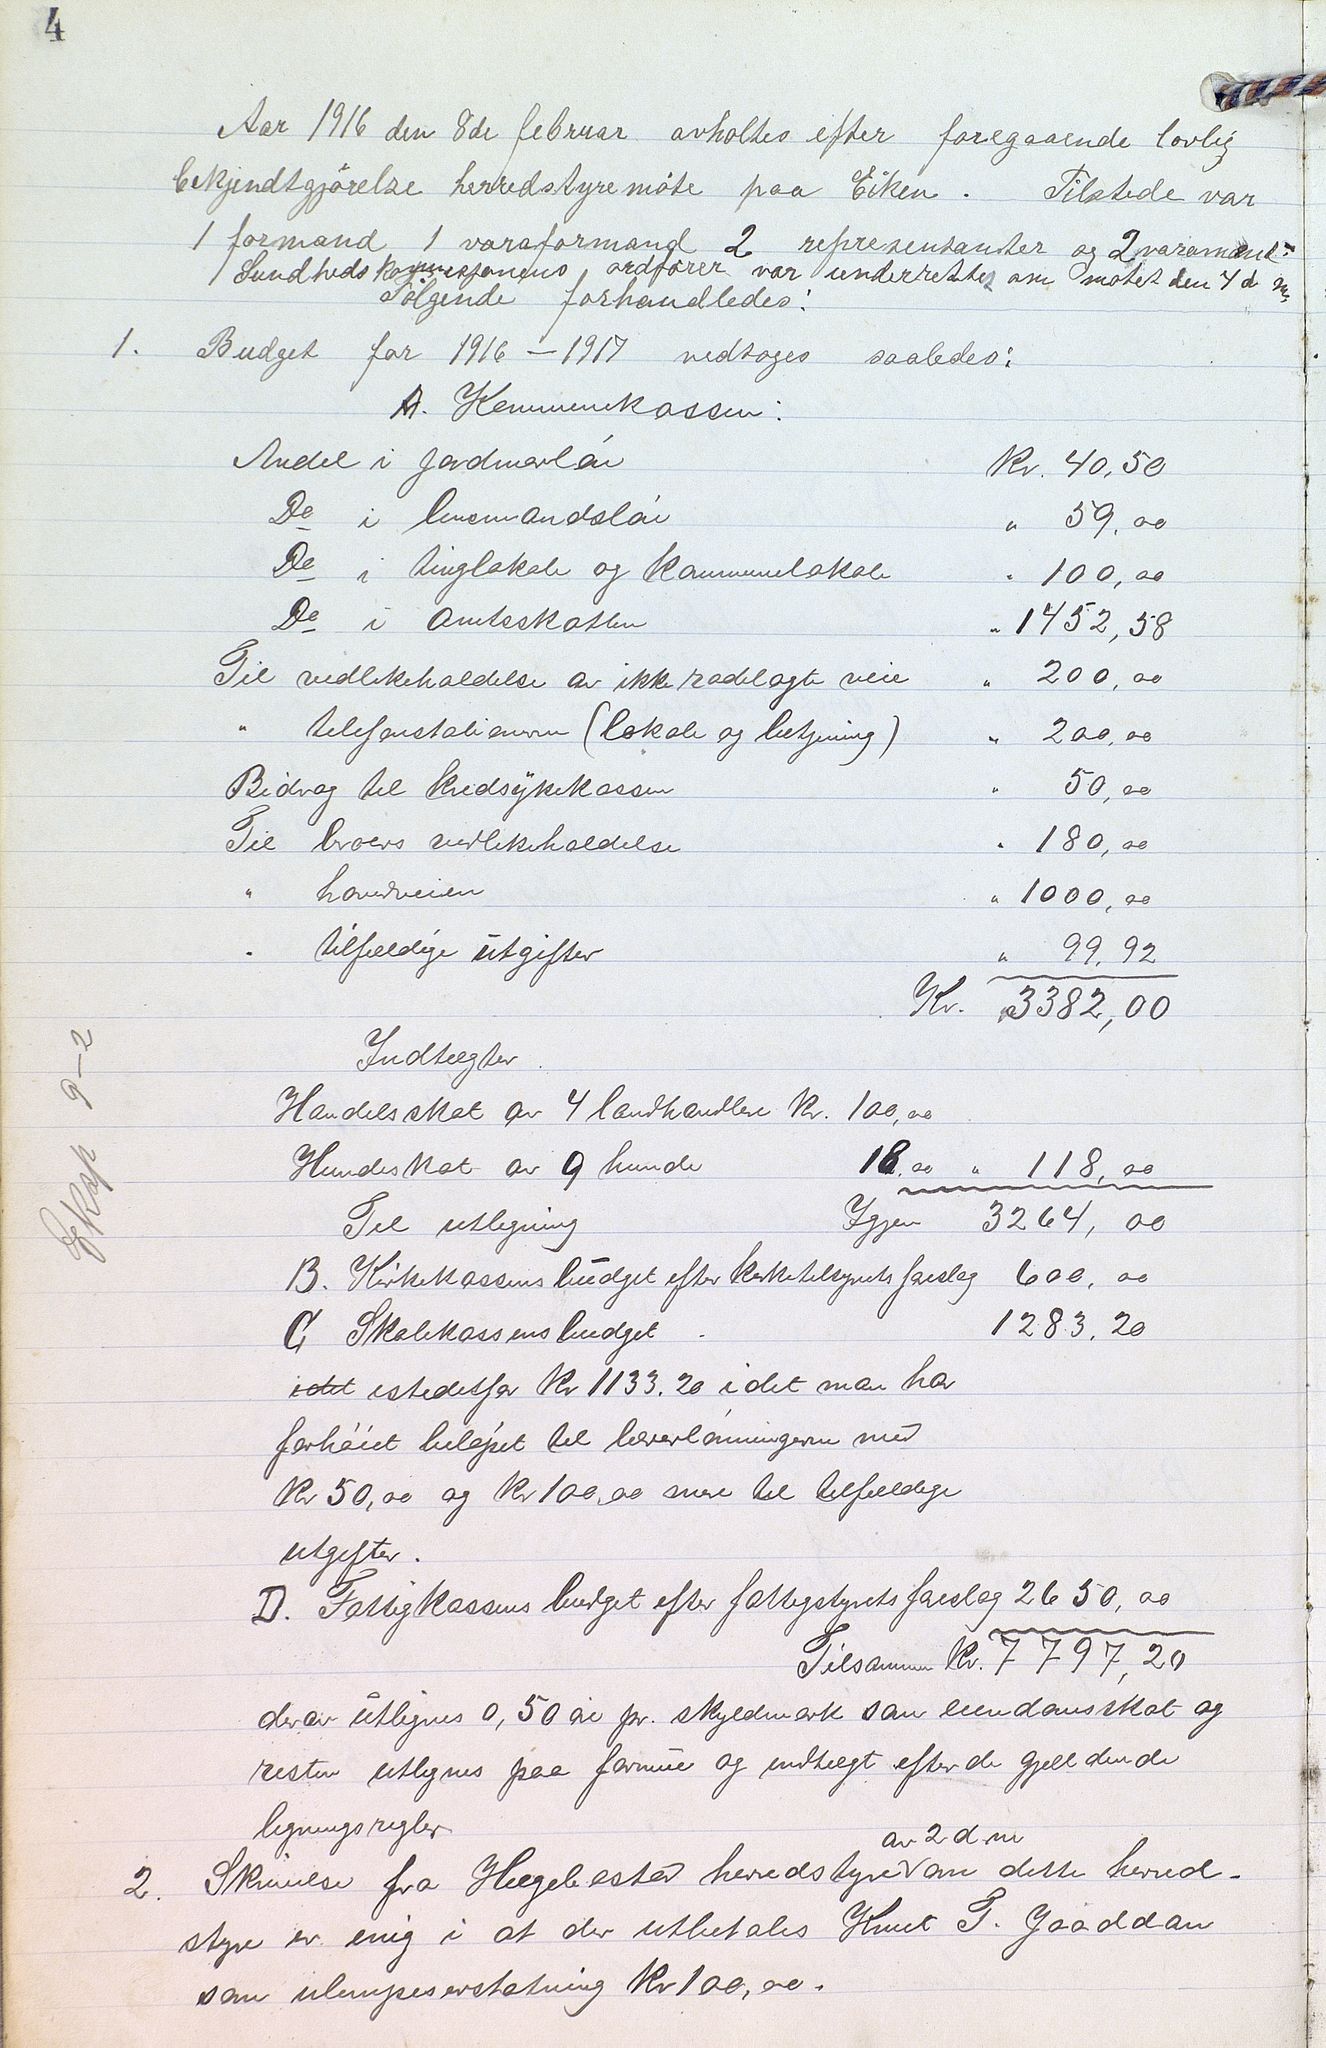 4
Aar 1916 den 8de februar avholtes efter foregaaende lovlig
bekjendtgjørelse herredstyremøte paa Eiken. Tilstede var
1 formand 1 varaformand 2 representanter og 2 varamænd.
Sundhedskommisjonens ordfører var underrettet om møtet den 4 d m,
Følgende forhandledes:
1. Budget for 1916 – 1917 vedtoges saaledes:
A. Kommunekassen:
Andel i jordmorløn Kr. 40,50
Do i lensmandsløn " 59,00
Do i tinglokale og kommunelokale " 100,00
Do i amtsskatten " 1452,58
Til vedlikeholdelse av ikke rodelagte veie " 200,00
" telefonstationerne (lokale og betjening) " 200,00
Bidrag til kredsykekassen " 50,00
Til broers vedlikeholdelse " 180,00
" hovedveien " 1000,00
" tilfældige utgifter " 99,92
Kr. 3382,00
Indtægter.
Handelsskat av 4 landhandlere Kr. 100,00
Hundeskat av 9 hunde 18,00 " 118,00
Til utligning Igjen 3264,00
B. Kirkekassens budget efter kirketilsynets forslag 600,00
C Skolekassens budget . 1283,20
idet istedetfor Kr 1133,20 idet man har
forhøiet beløpet til lærerlønningerne med
Kr 50,00 og Kr 100,00 mere til tilfældige
utgifter.
D. Fattigkassens budget efter fattigstyrets forslag 2650,00
Tilsammen Kr. 7797,20
derav utlignes 0,50 øre pr. skyldmark som eiendomsskat og
resten utlignes paa formue og indtægt efter de gjeldende
ligningsregler
av 2 d m
2. Skrivelse fra Hægebostad herredstyre V om dette herred-
styre er enig i at der utbetales Knut T. Jaaddan
som ulempeserstatning Kr 100,00.
Eksp 9-2